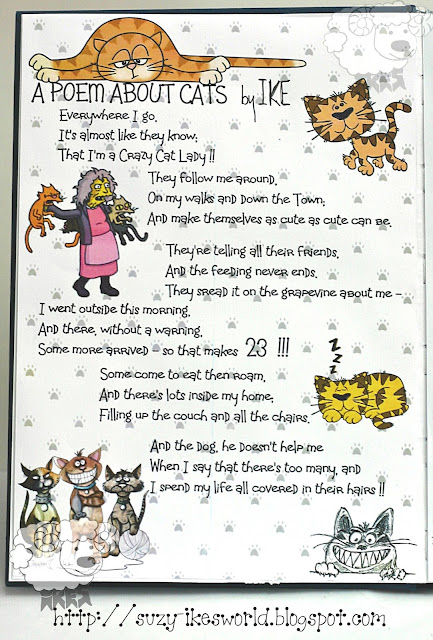 A POEM ABOUT CATS by IKE
Everywhere I go,
It's almost like they know;
That I'm a Crazy Cat Lady !!
They follow me around,
On my walks and down the Town;
And make themselves as cute as cute can be.
They're telling all their friends,
And the feeding never ends.
They sread it on the grapevine about me –
I went outside this morning,
And there, without a warning,
Some more arrived – so that makes 23 !!!
Z
Z
Z
Some come to eat then roam,
And there's lots inside my home;
Filling up the couch and all the chairs.
And the Dog, he doesn't help me
When I say that there's too many, and
I spend my life all covered in their hairs !!
IKE'S
IKE'S
IKE'S
http://suzy-ikesworld.blogspot.com